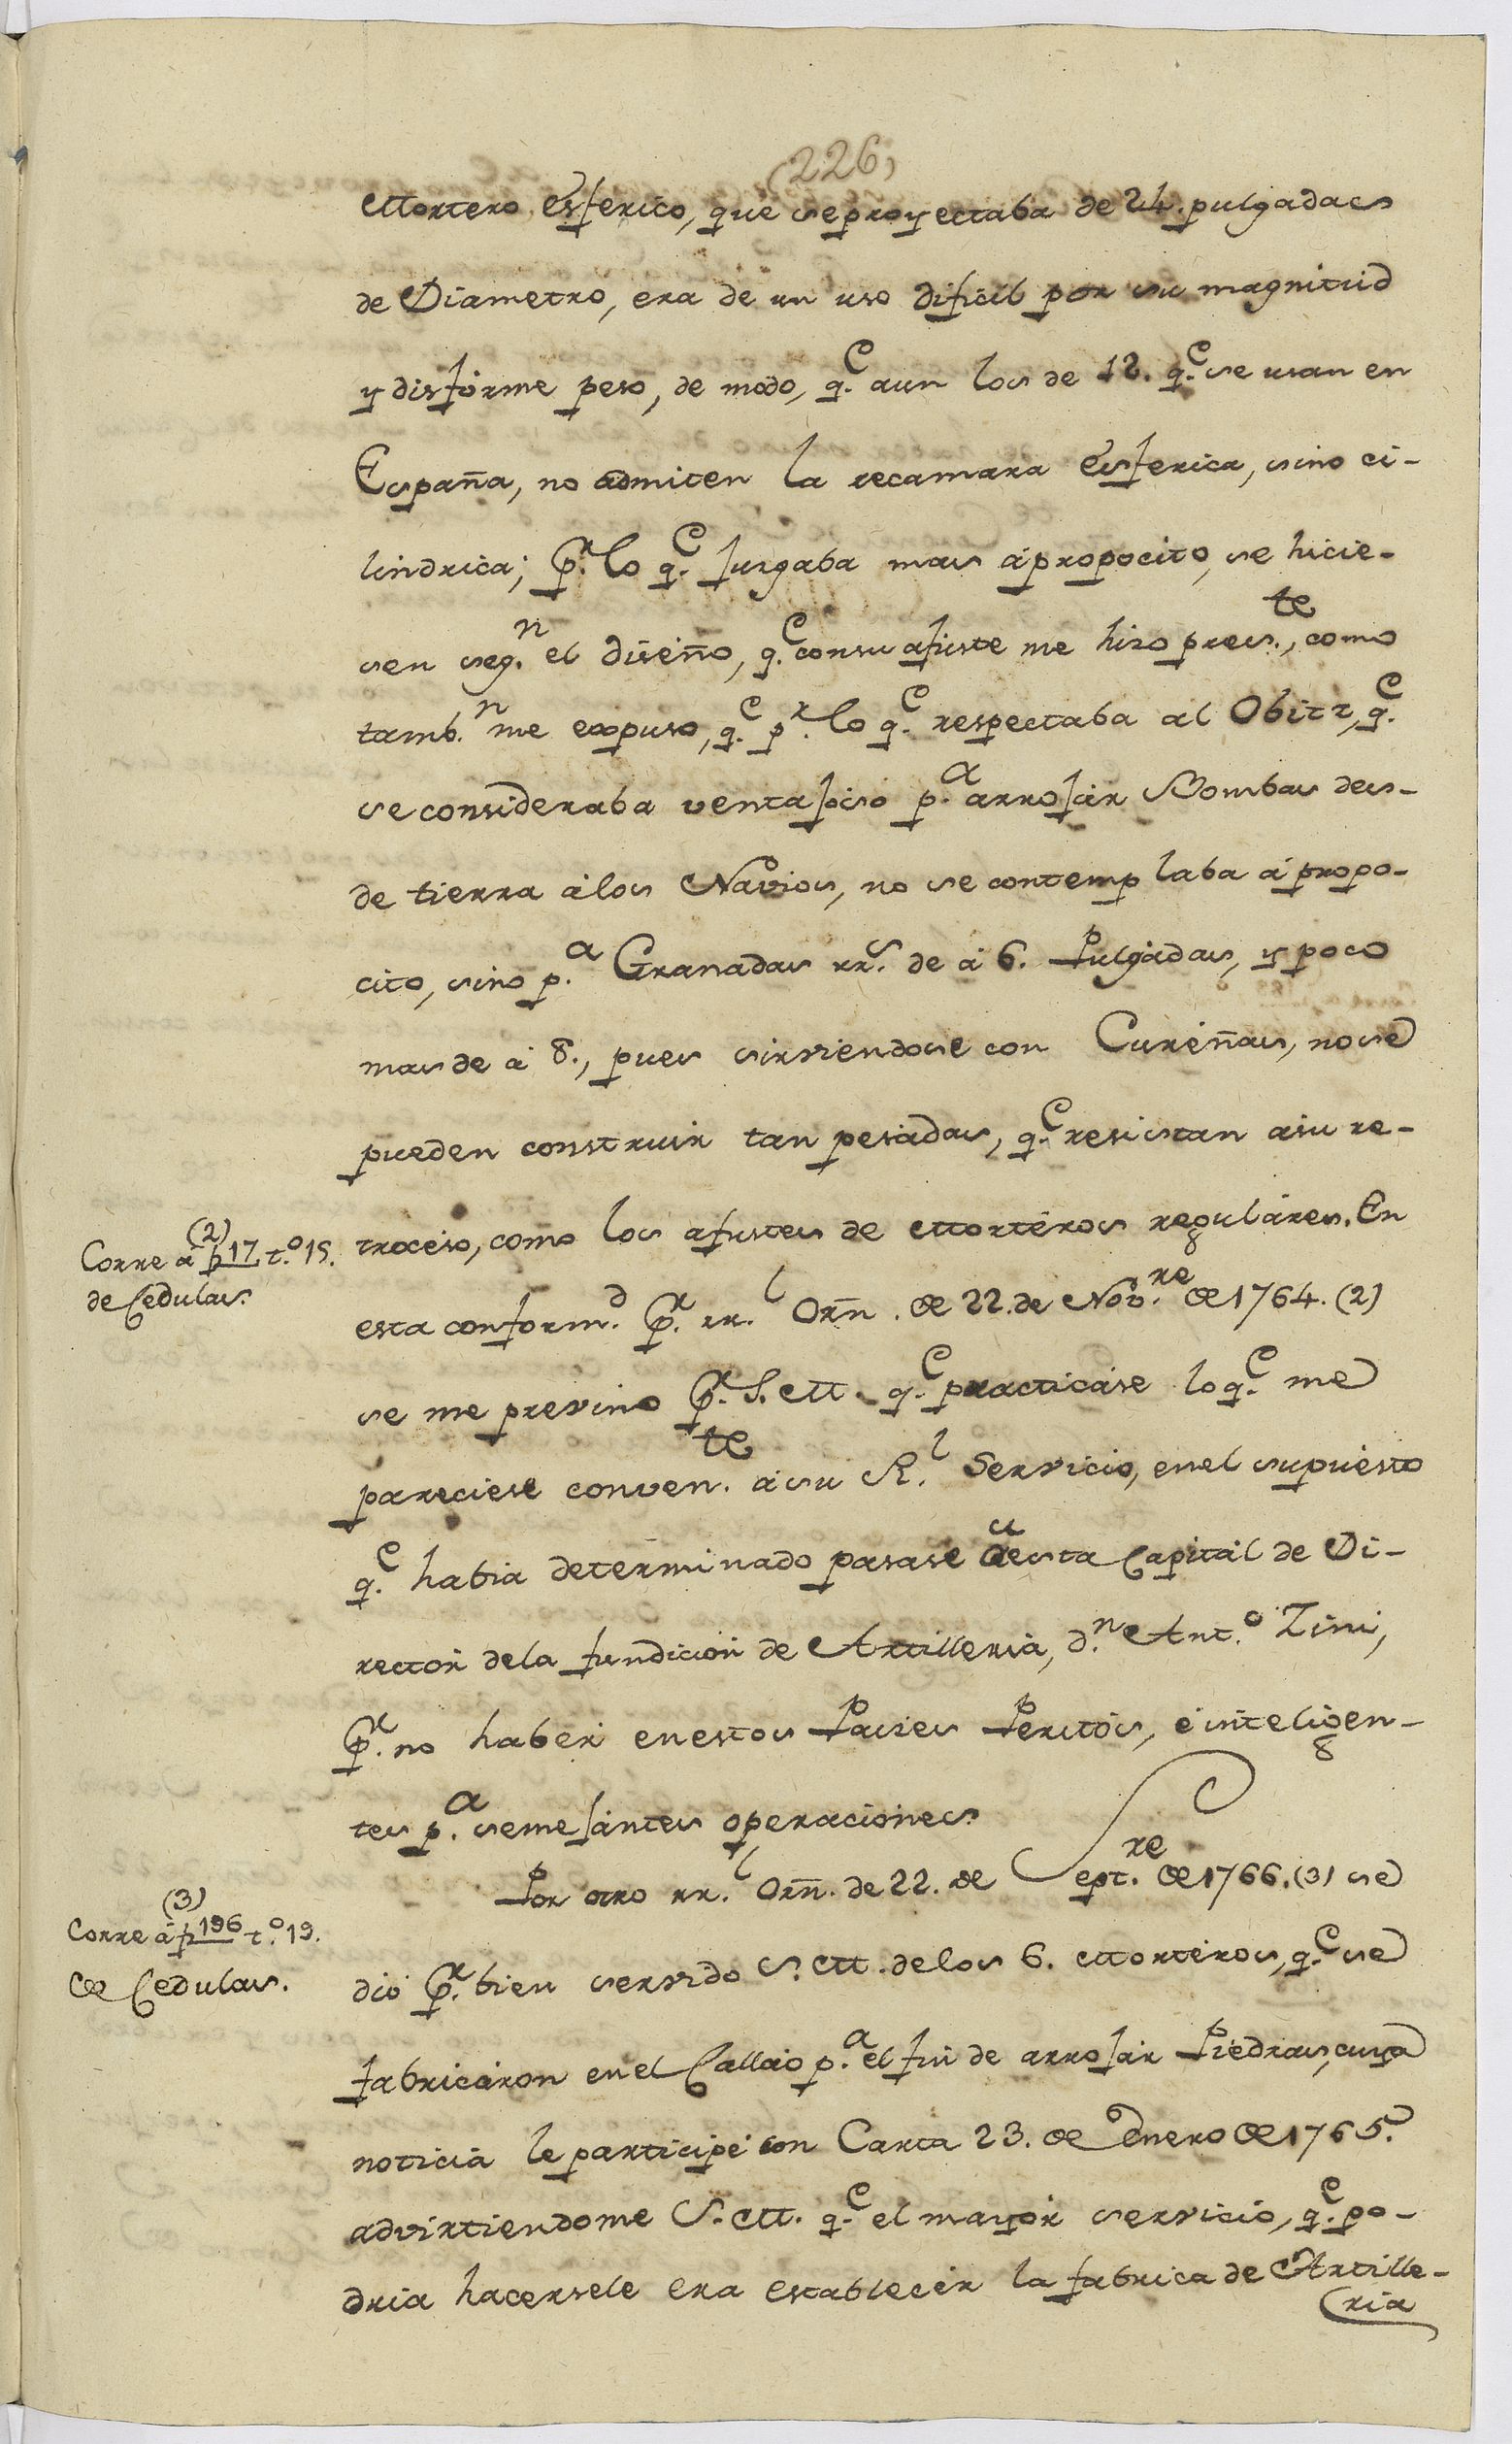 (226)
Mortero esferico, que se proyectaba de 24. pulgadas
de Diametro, era de un uso dificil por su magnitud
y disforme peso, de modo, q.e aun los de 12. q.e se usan en
España, no admiten la recamara esferica, sino ci-
lindrica; p.r lo q.e jusgaba mas ápropocito, se hicie-
sen seg.n el diseño, q.e con su afuste me hizo pres.te, como
tamb.n me expuso, q.e p.r lo q.e respectaba al Obitz, q.e
se consideraba ventajoso p.a arrojar Bombas des-
de tierra álos Navios, no se contemplaba á propo-
cito, sino p.a Granadas rr.s de á 6. Pulgadas, y poco
mas de á 8., pues sirviendose con Cureñas, no se
pueden construir tan pesadas, q.e resistan asu re-
troceso, como los afustes de Morteros regulares. En
(2)
Corre á f 17 t.o 15.
de Cedulas.
esta conform.d p.r rr.l Orn̄. de 22. de Nov.re de 1764. (2)
se me previno p.r S. M. q.e practicáse lo q.e me
pareciese conven.te ásu R.l Servicio, enel supuesto
q.e habia determinado pasase á esta Capital de Di-
rector dela fundicion de Artilleria, d.n Ant.o Zini,
p.r no haber enestos Paises Peritos, é inteligen-
tes p.a semejantes operaciones.
Por otro rr.l Orn̄. de 22. de Sept.re de 1766. (3) se
(3)
Corre á f 196 t.o 19.
de Cedulas.
dió p.r bien servido S. M. delos 6. Morteros, q.e se
fabricaron enel Callao p.a el fin de arrojar Piedras, cuya
noticia le participé con Carta 23. de Enero de 1765.
advirtiendome S. M. q.e el mayor servicio, q.e po-
dria hacersele era establecer la fabrica de Artille-
ria